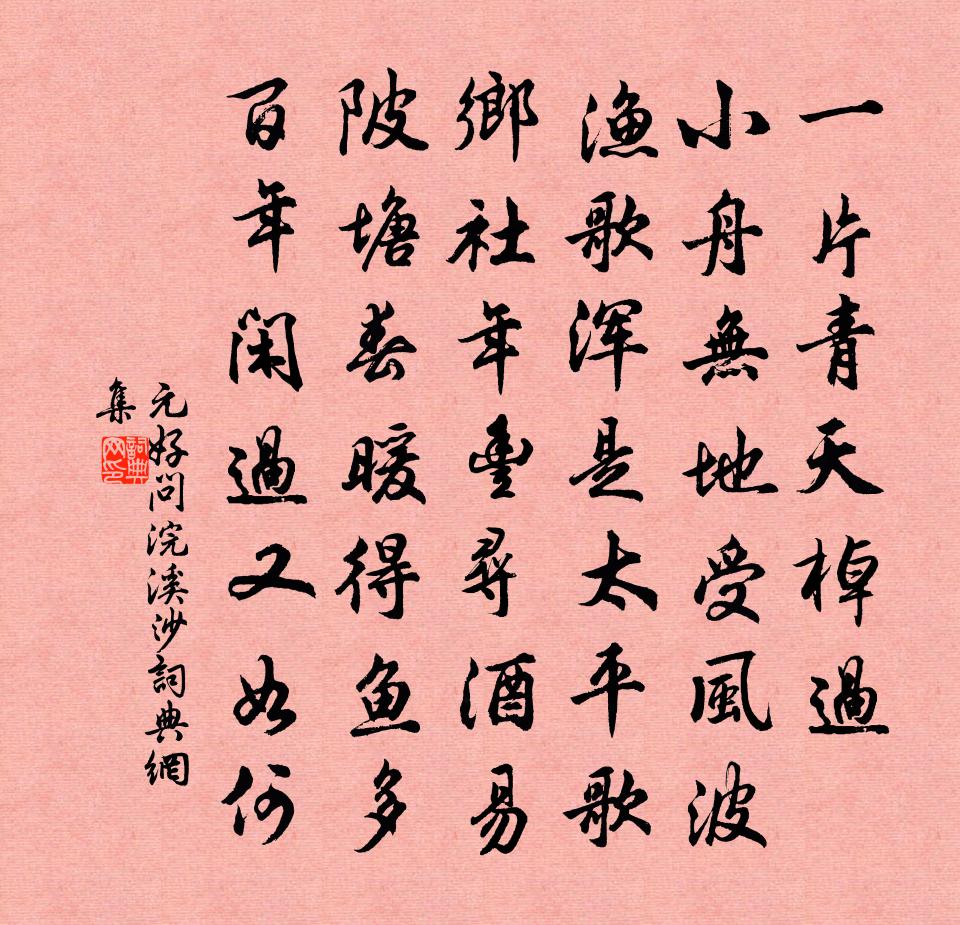 一片青天棹過
小舟無地受風波
漁歌浑是太平歌
鄉社年豊尋酒易
陂塘春暖得魚多
百年閑過又如何
元好問浣溪沙詞典網
集
詞典网印